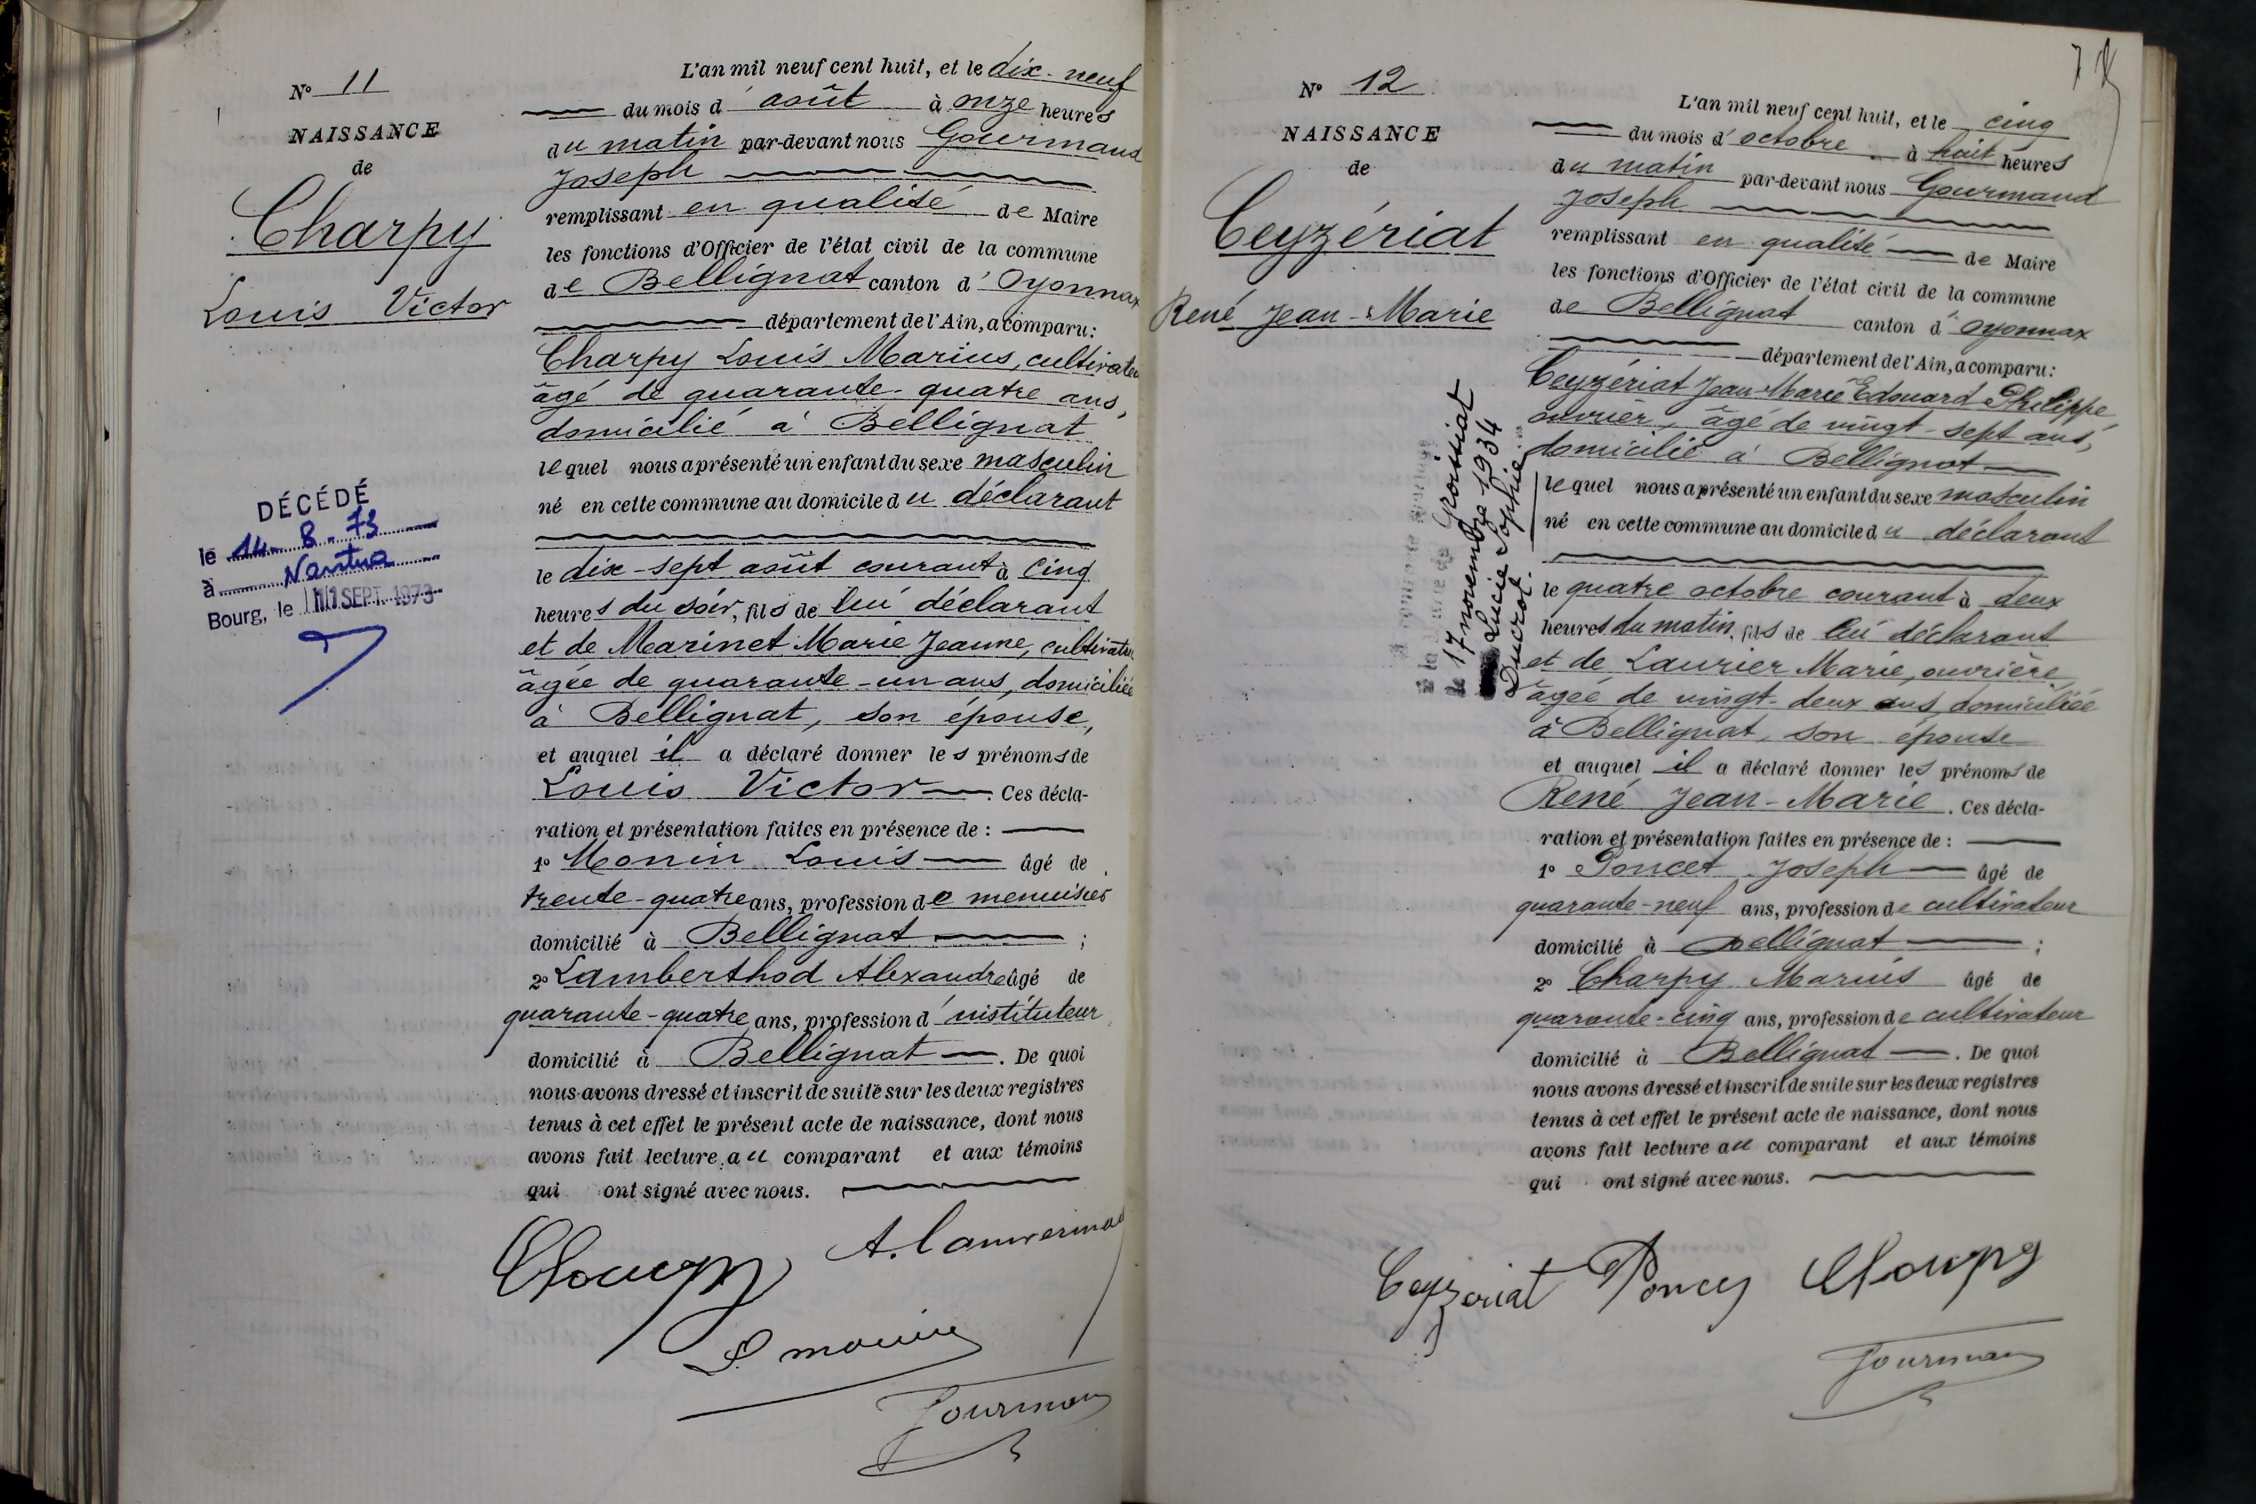 N° 11
NAISSANCE
de
Charpy
Louis Victor
DÉCÉDÉ
le 14. 8. 73
à Nantua
Bourg, le 11 SEPT. 1973
L'an mil neuf cent huit, et le dix-neuf
du mois d'août à onze heures
du matin par-devant nous Gourmand
Joseph
remplissant en qualité de Maire
les fonctions d'Officier de l'état civil de la commune
de Bellignat canton d'Oyonnax
département de l'Ain, a comparu:
Charpy Louis Marius, cultivateur
âgé de quarante-quatre ans,
domicilié à Bellignat
lequel nous a présenté un enfant du sexe masculin
né en cette commune au domicile du déclarant
le dix-sept août courant à cinq
heures du soir, fils de lui déclarant
et de Marinet Marie Jeanne, cultivatrice
âgée de quarante-un ans, domiciliée
à Bellignat, son épouse,
et auquel il a déclaré donner les prénoms de
Louis Victor. Ces décla-
ration et présentation faites en présence de :
1° Monin Louis âgé de
trente-quatre ans, profession de menuisier
domicilié à Bellignat ;
2° Lamberthod Alexandre âgé de
quarante-quatre ans, profession d'instituteur
domicilié à Bellignat. De quoi
nous avons dressé et inscrit de suite sur les deux registres
tenus à cet effet le présent acte de naissance, dont nous
avons fait lecture au comparant et aux témoins
qui ont signé avec nous.
Charpy
L. monin
Gourmand
N° 12
NAISSANCE
de
Ceyzériat
René Jean-Marie
Groissiat
le 17 novembre 1934
Lucie Sophie
Ducrot.
L'an mil neuf cent huit, et le cinq
du mois d'octobre à huit heures
du matin par-devant nous Gourmand
Joseph
remplissant en qualité de Maire
les fonctions d'Officier de l'état civil de la commune
de Bellignat canton d'Oyonnax
département de l'Ain, a comparu:
Ceyzériat Jean-Marie Edouard Philippe,
ouvrier, âgé de vingt-sept ans,
domicilié à Bellignat
lequel nous a présenté un enfant du sexe masculin
né en cette commune au domicile du déclarant
le quatre octobre courant à deux
heures du matin, fils de lui déclarant
et de Laurier Marie, ouvrière,
âgée de vingt-deux ans, domiciliée
à Bellignat, son épouse
et auquel il a déclaré donner les prénoms de
René Jean-Marie. Ces décla-
ration et présentation faites en présence de :
1° Poncet Joseph âgé de
quarante-neuf ans, profession de cultivateur
domicilié à Bellignat ;
2° Charpy Marius âgé de
quarante-cinq ans, profession de cultivateur
domicilié à Bellignat. De quoi
nous avons dressé et inscrit de suite sur les deux registres
tenus à cet effet le présent acte de naissance, dont nous
avons fait lecture au comparant et aux témoins
qui ont signé avec nous.
Ceyzeriat Poncet Charpy
Gourmand